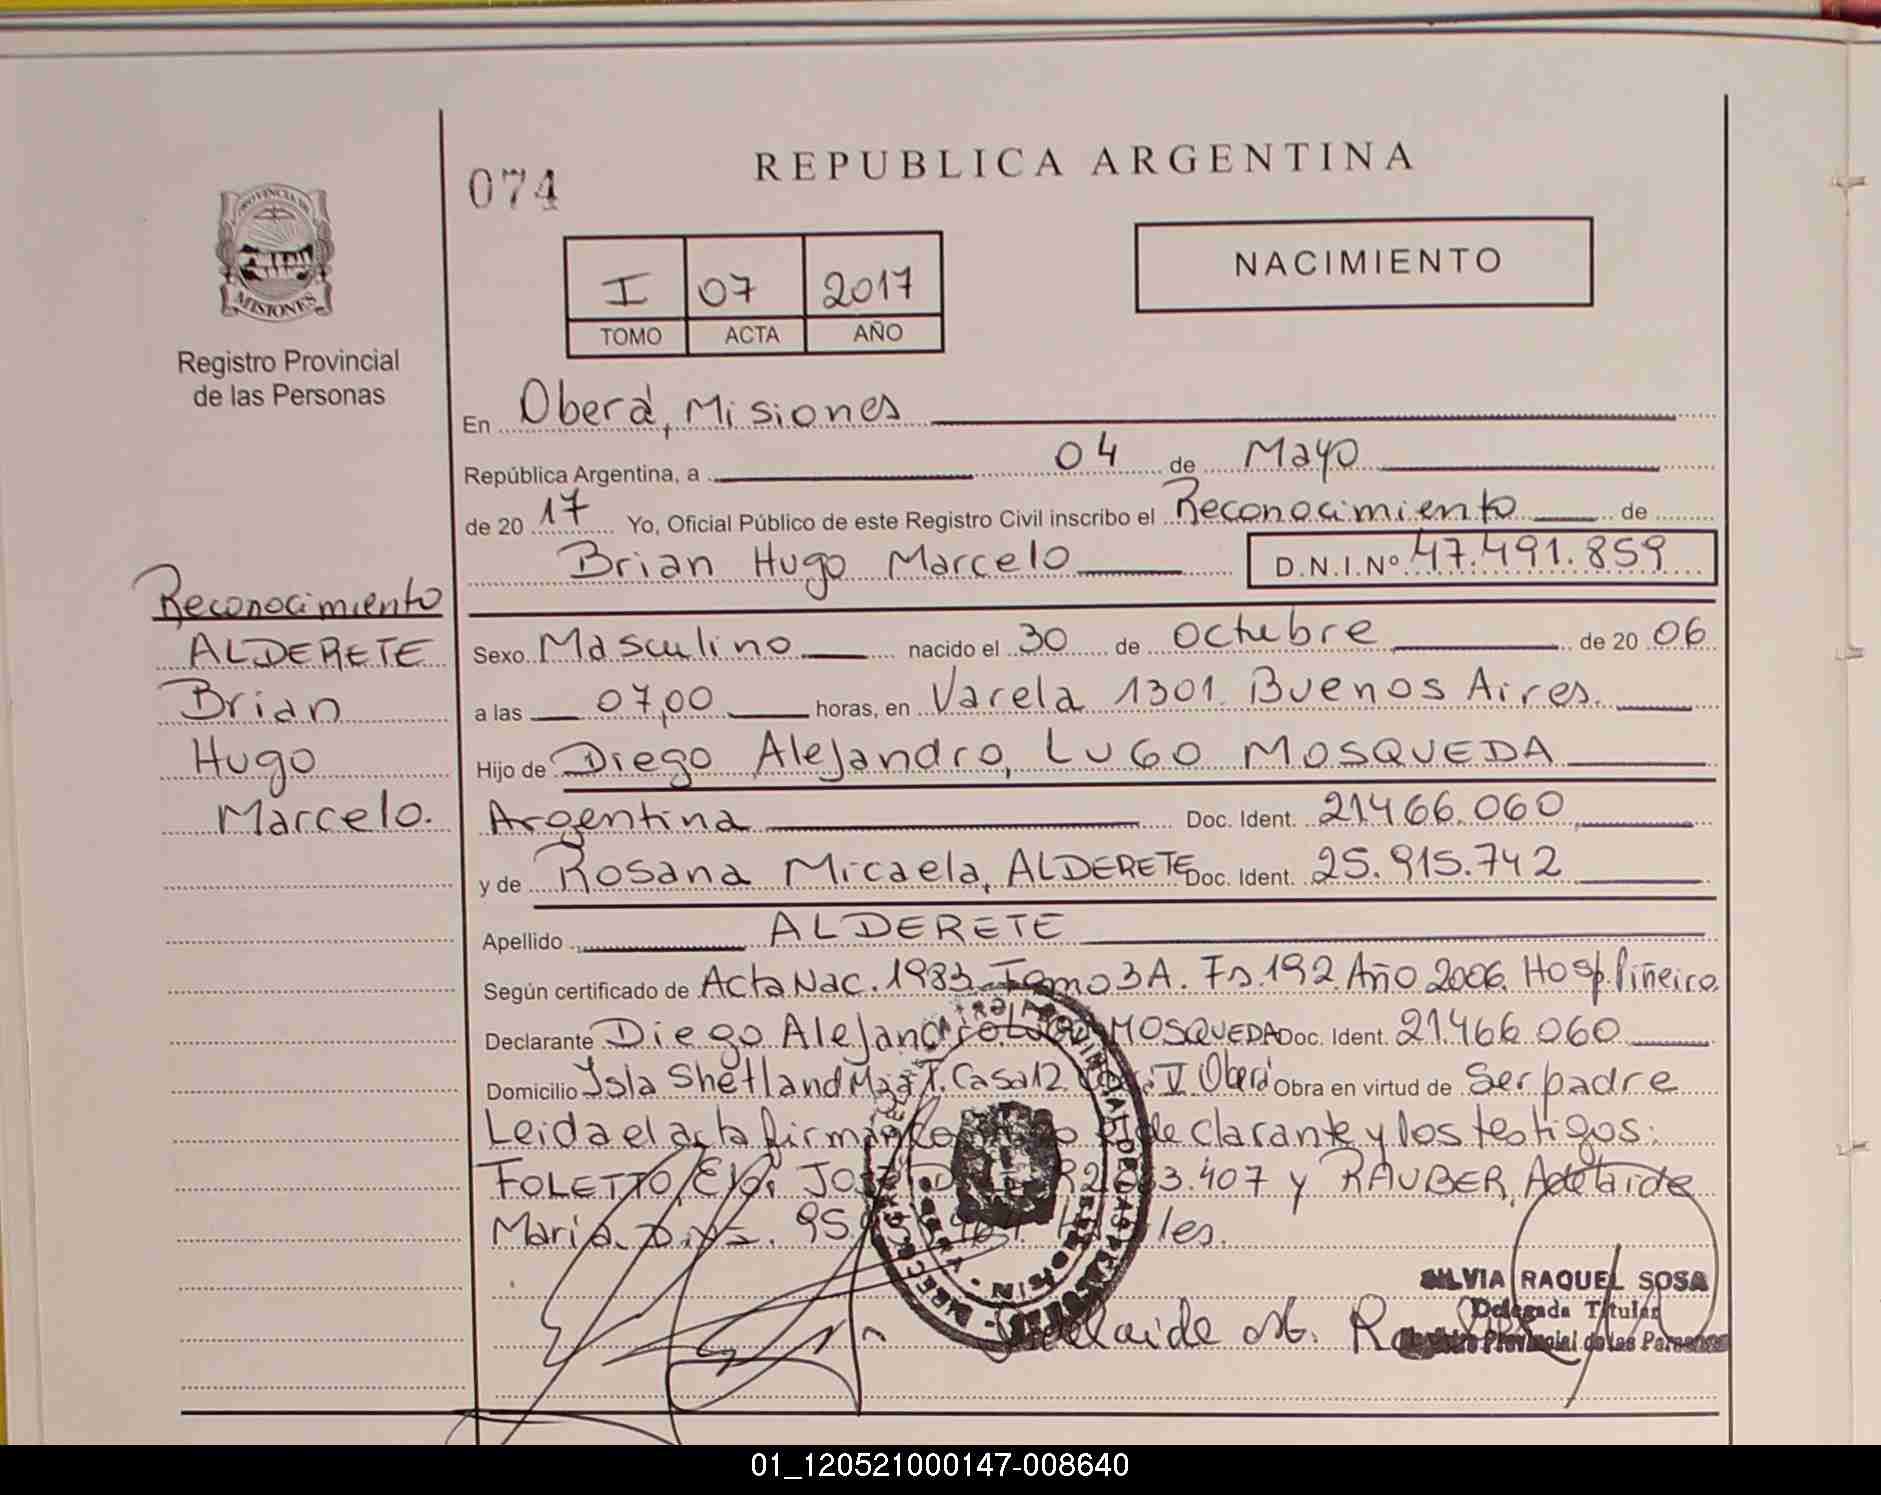 REPUBLICA ARGENTINA
074
PROVINCIA DE
MISIONES
Registro Provincial
de las Personas
I 07 2017
TOMO ACTA AÑO
NACIMIENTO
En Oberá, Misiones
República Argentina, a 04 de Mayo
de 20 17 Yo, Oficial Público de este Registro Civil inscribo el Reconocimiento de
Brian Hugo Marcelo D.N.I.Nº 47.491.859
Reconocimiento
ALDERETE
Brian
Hugo
Marcelo.
Sexo Masculino nacido el 30 de Octubre de 20 06
a las 07,00 horas, en Varela 1301. Buenos Aires.
Hijo de Diego Alejandro, LUGO MOSQUEDA
Argentina Doc. Ident. 21466.060
y de Rosana Micaela, ALDERETE Doc. Ident. 25.915.742
Apellido ALDERETE
Según certificado de Acta Nac. 1983 Tomo 3A. Fs.192 Año 2006. Hosp. Piñeiro.
Declarante Diego Alejandro MOSQUEDA Doc. Ident. 21466.060
Domicilio Isla Shetland Casa 12 V Oberá Obra en virtud de Ser padre
Leida el acta firman declarante y los testigos:
FOLETTO, 3.407 y RAUBER, Adelaide
Maria 95.
Adelaide M.
SILVIA RAQUEL SOSA
Delegada Titular
Registro Provincial de las Personas
01_120521000147-008640